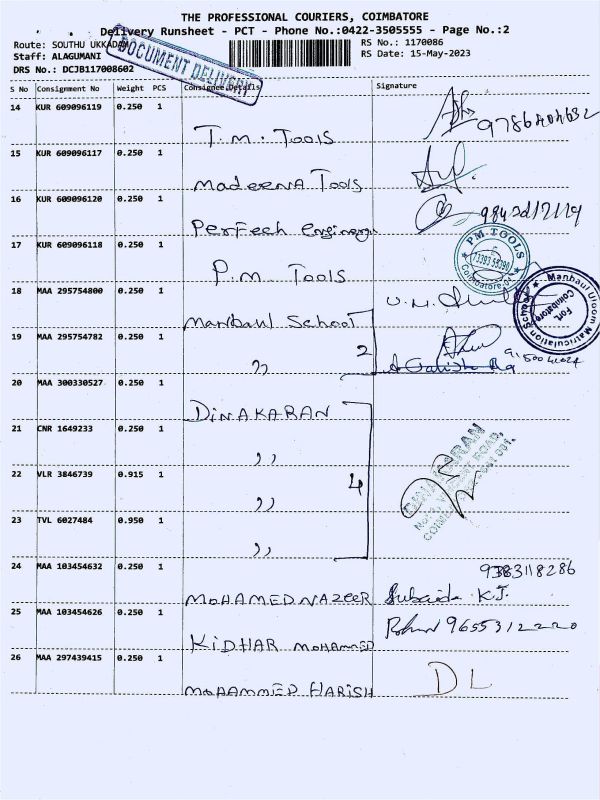 THE PROFESSIONAL COURIERS, COIMBATORE
Delivery Runsheet - PCT - Phone No.:0422-3505555 - Page No.:2
Route: SOUTHU UKKADAM
RS No.: 1170086
Staff: ALAGUMANI
RS Date: 15-May-2023
DRS No.: DCJB117008602
DOCUMENT DELIVERY
S No Consignment No Weight PCS Consignee Details Signature
14 KUR 609096119 0.250 1
T.M. Tools 9786404632
15 KUR 609096117 0.250 1
Madeena Tools
16 KUR 609096120 0.250 1
Perfech
17 KUR 609096118 0.250 1
P.M. Tools
P.M. TOOLS
Coimbatore
18 MAA 295754800 0.250 1
Manbaul School
Manbaul Uloom Matriculation School
Fort, Coimbatore
19 MAA 295754782 0.250 1
,, 2
20 MAA 300330527 0.250 1
DINAKARAN
21 CNR 1649233 0.250 1
,,
DINAKARAN
22 VLR 3846739 0.915 1
,, 4
23 TVL 6027484 0.950 1
,,
24 MAA 103454632 0.250 1
9383118286
MOHAMED NAZEER Subaida K.J.
25 MAA 103454626 0.250 1
KIDHAR MOHAMMED 9655312220
26 MAA 297439415 0.250 1
MOHAMMED HARISH DL